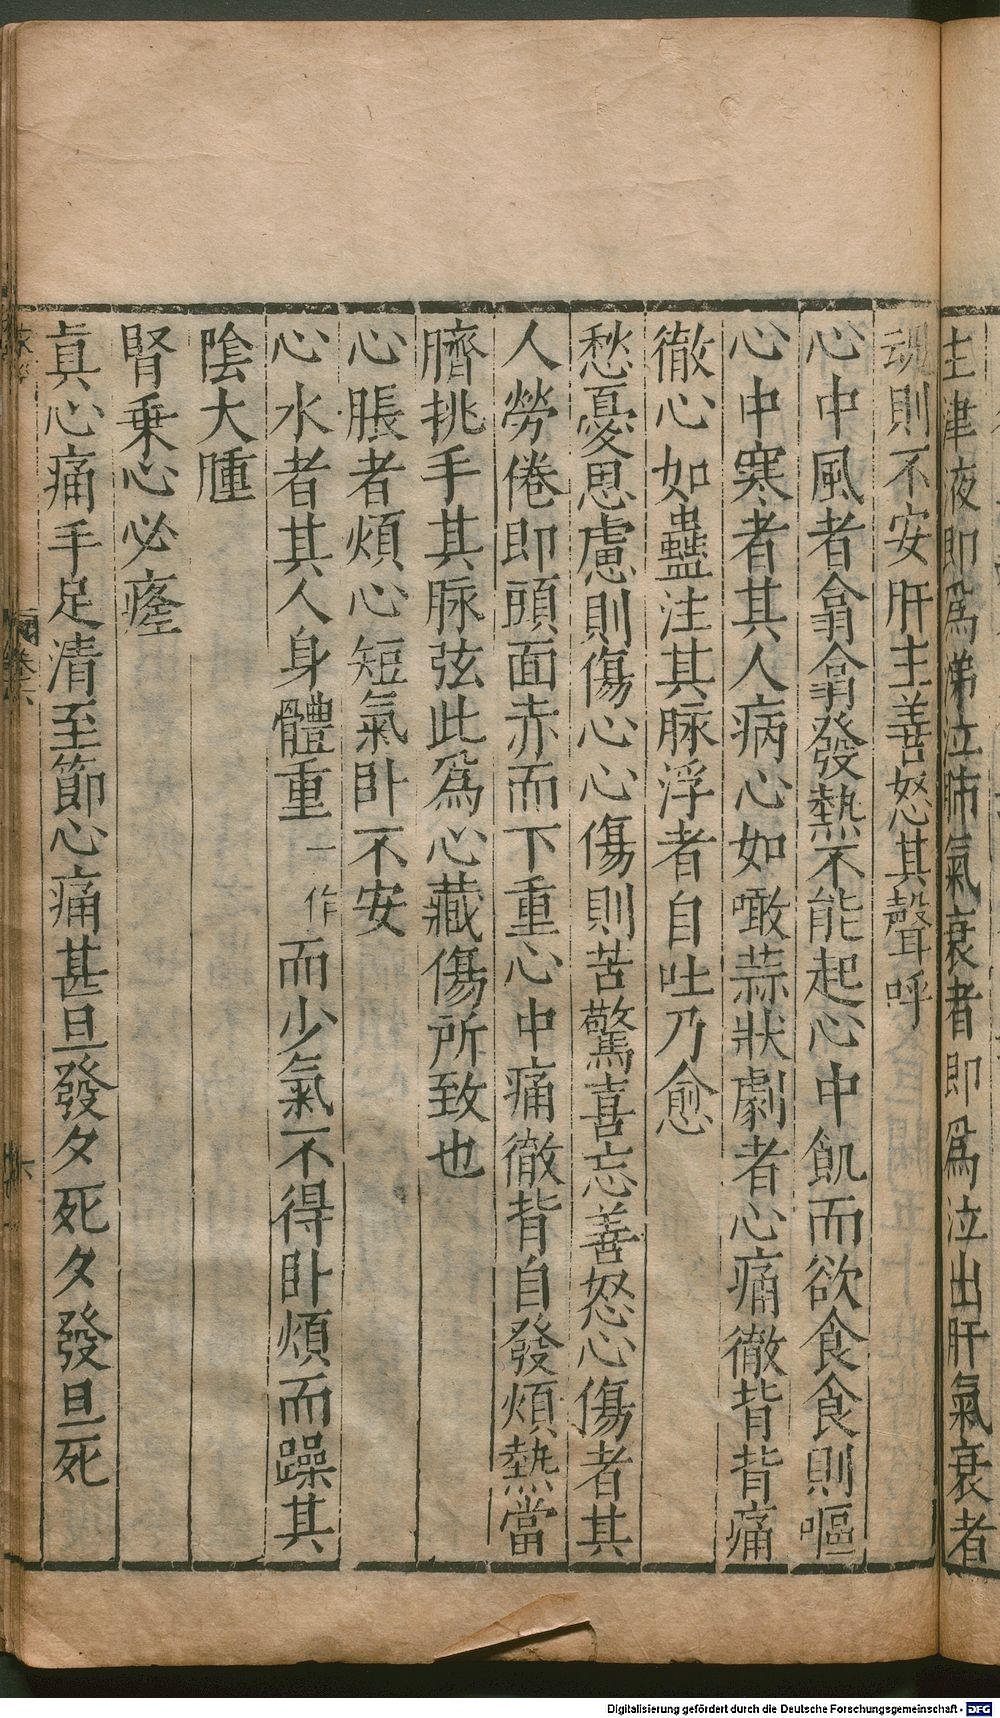 主津液即爲涕泣肺氣衰者即爲泣出肝氣衰者
魂則不安肝主善怒其聲呼
心中風者翕翕發熱不能起心中飢而欲食食則嘔
心中寒者其人病心如噉蒜狀劇者心痛徹背背痛
徹心如蠱注其脉浮者自吐乃愈
愁憂思慮則傷心心傷則苦驚喜忘善怒心傷者其
人勞倦即頭面赤而下重心中痛徹背自發煩熱當
臍挑手其脉弦此爲心藏傷所致也
心脹者煩心短氣卧不安
心水者其人身體重一作而少氣不得卧煩而躁其
陰大腫
腎乗心必癃
眞心痛手足清至節心痛甚旦發夕死夕發旦死
卷六
六
Digitalisierung gefördert durch die Deutsche Forschungsgemeinschaft - DFG